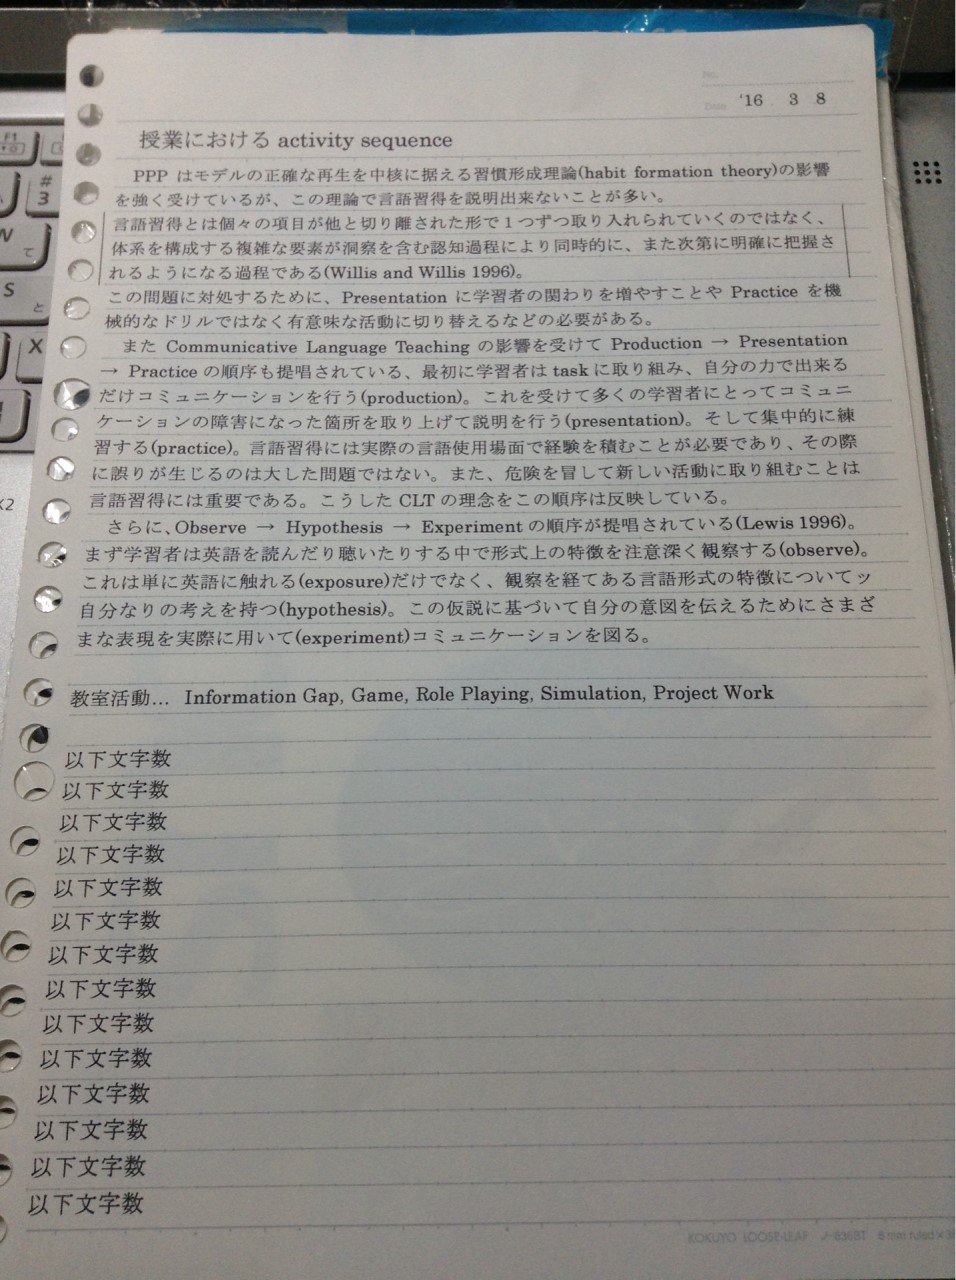 No.
Date '16 3 8
授業における activity sequence
PPP はモデルの正確な再生を中核に据える習慣形成理論(habit formation theory)の影響
を強く受けているが、この理論で言語習得を説明出来ないことが多い。
言語習得とは個々の項目が他と切り離された形で１つずつ取り入れられていくのではなく、
体系を構成する複雑な要素が洞察を含む認知過程により同時的に、また次第に明確に把握さ
れるようになる過程である(Willis and Willis 1996)。
この問題に対処するために、Presentation に学習者の関わりを増やすことや Practice を機
械的なドリルではなく有意味な活動に切り替えるなどの必要がある。
また Communicative Language Teaching の影響を受けて Production → Presentation
→ Practice の順序も提唱されている、最初に学習者は task に取り組み、自分の力で出来る
だけコミュニケーションを行う(production)。これを受けて多くの学習者にとってコミュニ
ケーションの障害になった箇所を取り上げて説明を行う(presentation)。そして集中的に練
習する(practice)。言語習得には実際の言語使用場面で経験を積むことが必要であり、その際
に誤りが生じるのは大した問題ではない。また、危険を冒して新しい活動に取り組むことは
言語習得には重要である。こうした CLT の理念をこの順序は反映している。
さらに、Observe → Hypothesis → Experiment の順序が提唱されている(Lewis 1996)。
まず学習者は英語を読んだり聴いたりする中で形式上の特徴を注意深く観察する(observe)。
これは単に英語に触れる(exposure)だけでなく、観察を経てある言語形式の特徴についてッ
自分なりの考えを持つ(hypothesis)。この仮説に基づいて自分の意図を伝えるためにさまざ
まな表現を実際に用いて(experiment)コミュニケーションを図る。
教室活動… Information Gap, Game, Role Playing, Simulation, Project Work
以下文字数
以下文字数
以下文字数
以下文字数
以下文字数
以下文字数
以下文字数
以下文字数
以下文字数
以下文字数
以下文字数
以下文字数
以下文字数
以下文字数
KOKUYO LOOSE-LEAF ノ-836BT 6 mm ruled
F1
#
3
W
て
S
と
X